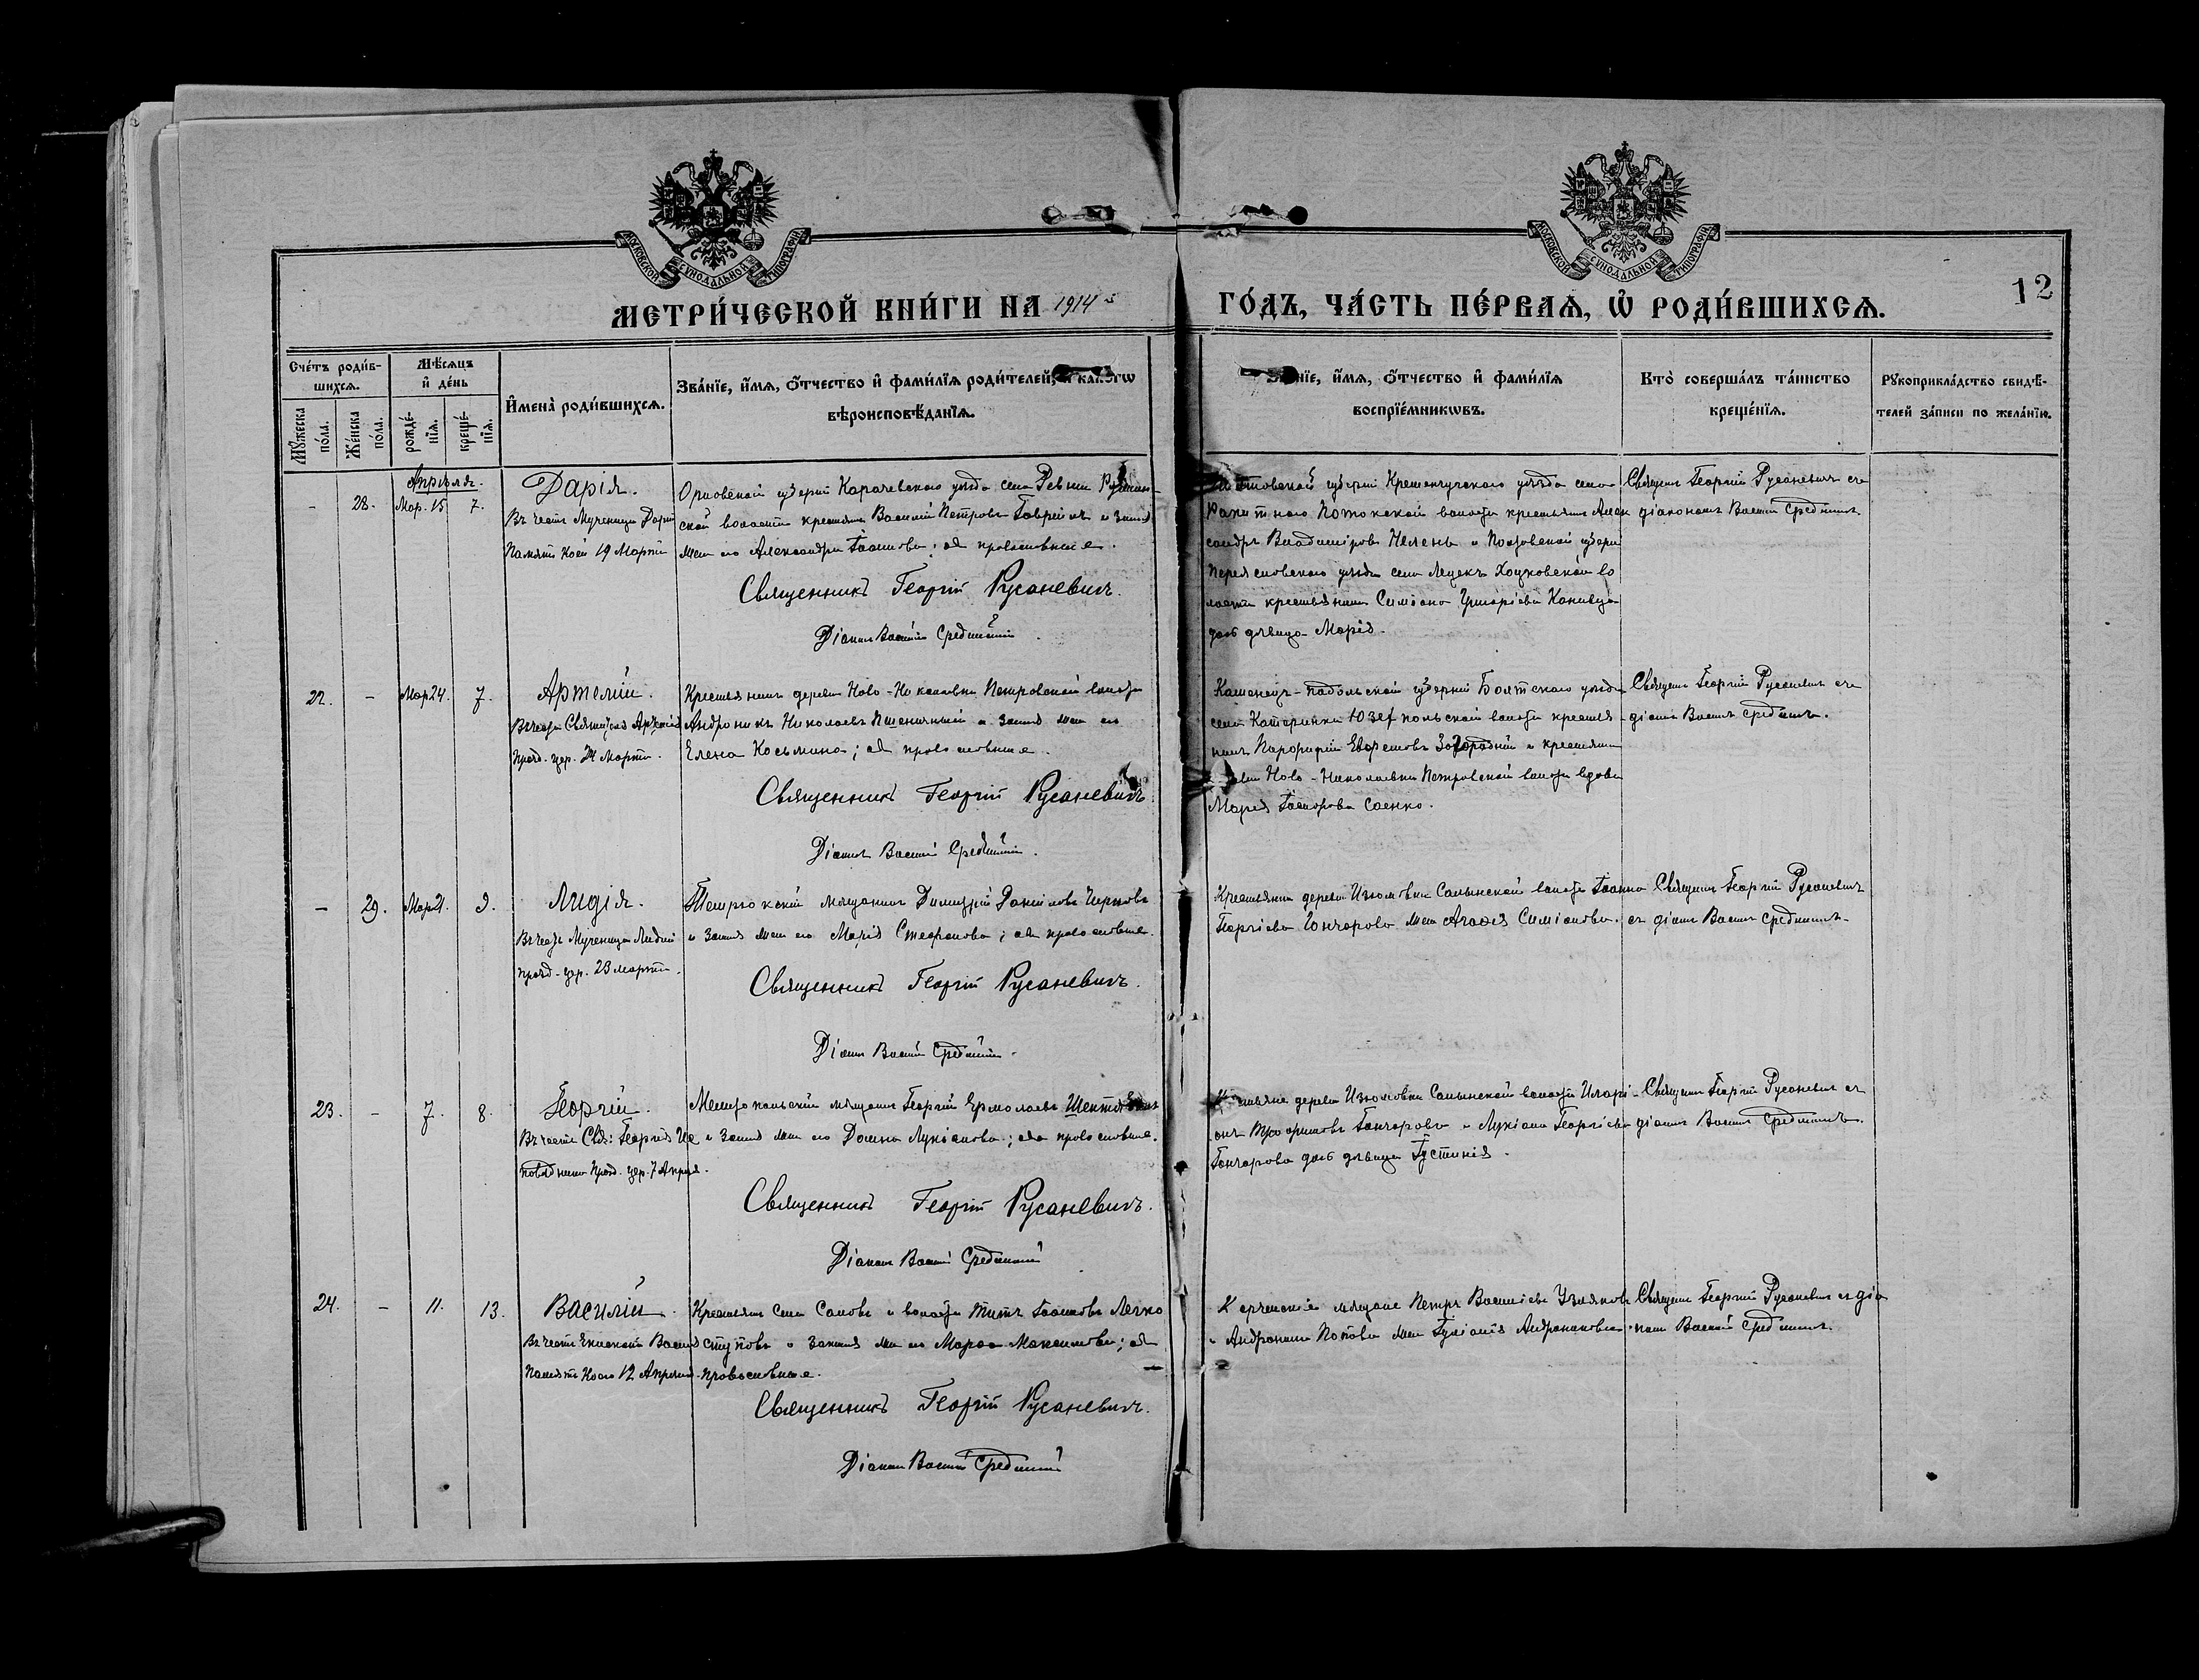 МОСКОВСКОЙ СУНОДАЛЬНОЙ ТИПОГРАФИИ
МОСКОВСКОЙ СУНОДАЛЬНОЙ ТИПОГРАФИИ
12
МЕТРИ́ЧЕСКОЙ КНИ́ГИ НА 1914
ГО́ДЪ, ЧА́СТЬ ПЕ́РВАѦ, Ѡ РОДИ́ВШИХСѦ.
Сче́тъ роди́в-
шихсѧ.
Мѣ́сѧцъ
и҆ де́нь
Мꙋ́жеска
по́ла.
Же́нска
по́ла.
рожде́-
нїѧ.
креще́-
нїѧ.
И҆мена̀ роди́вшихсѧ.
Зва́нїе, и҆́мѧ, ѻ҆́тчество и҆ фами́лїѧ роди́телей, и҆ како́гѡ
вѣроисповѣ́данїѧ.
нїе, и҆́мѧ, ѻ҆́тчество и҆ фами́лїѧ
воспрїе́мникѡвъ.
Кто̀ соверша́лъ та́инство
креще́нїѧ.
Рꙋкоприкла́дство свидѣ́-
телей за́писи по жела́нїю.
Апрѣля.
- 28. Мар. 15 7. Дарія.
Въ честь Мученицы Даріи
Память коей 19 Марта
Орловской губерніи Карачевскаго уѣзда села Ревны
ской волости крестьян. Василій Петровъ Гаврил и закон
жен его Александра Іоаннова; оба православные.
Священникъ Георгій Русаневичъ.
Діаконъ Василій Срединскій.
губерніи Кременчугскаго уѣзда села
Потокской волости крестьянин Алек
сандръ Владиміров и Полтавской губерн
Переяславскаго уѣзда села Лецекъ Хоцковской во
лости крестьянина Симеона Григоріева Канивца
дочь дѣвица Марія.
Священ Георгій Русаневичъ съ
діакономъ Василіем Срединским.
22. - Мар 24. 7. Артемій.
Въ честь Святителя Артемія
Празд. цер. 24 Марта.
Крестьянин деревни Ново-Николаевки Петровской волости
Андроникъ Николаевъ Пшеничный и закон жен его
Елена Косьмина; оба православные.
Священникъ Георгій Русаневичъ.
Діаконъ Василій Срединскій.
Каменецъ-Подольской губерніи уѣзда
села Катеринки Юзефпольской волости крестья
нинъ и крестьянка
Ново-Николаевки Петровской волости вдова
Марія Саенко.
Священ Георгій Русаневич съ
діакон Василіем Срединским.
- 29. Мар 21. 9. Лидія.
Въ честь Мученицы Лидіи
празд. цер. 23 марта.
Темрюкскій мѣщанинъ Димитрій Даніиловъ Черновъ
и закон жен его Марія Стефанова; оба православные.
Священникъ Георгій Русаневичъ.
Діаконъ Василій Срединскій.
Крестьянка деревни Изюмовки Салынской волости Іоанна
Георгіева Гончарова жен Агафія Симеонова.
Священ Георгій Русаневичъ
съ діакон Василіем Срединским.
23. - 7. 8. Георгій.
Въ честь Свят: Георгія Ис
повѣдника Празд. цер. 7 Апрѣля.
Мелитопольскій мѣщанинъ Георгій Ермолаевъ
и закон жен его Домна Лукіанова; оба православные.
Священникъ Георгій Русаневичъ.
Діаконъ Василій Срединскій
деревни Изюмовки Салынской волости Иларі-
онъ Трофимовъ Гончаровъ и Лукіана Георгіева
Гончарова дочь дѣвица Іустинія.
Священ Георгій Русаневич съ
діакон Василіем Срединскимъ.
24. - 11. 13. Василій.
Въ честь Епископа Василія
Память Коего 12 Апрѣля.
Крестьянин села Саловъ и волости Титъ Іоанновъ Легко
ступовъ и законная жен его Марфа Максимова; оба
православные.
Священникъ Георгій Русаневичъ.
Діаконъ Василій Срединскій
Керченскіе мѣщане Петръ Василіевъ
и Андроника Попова жен Іуліанія Андроникова.
Священ Георгій Русаневич съ діа
кон Василій Срединским.